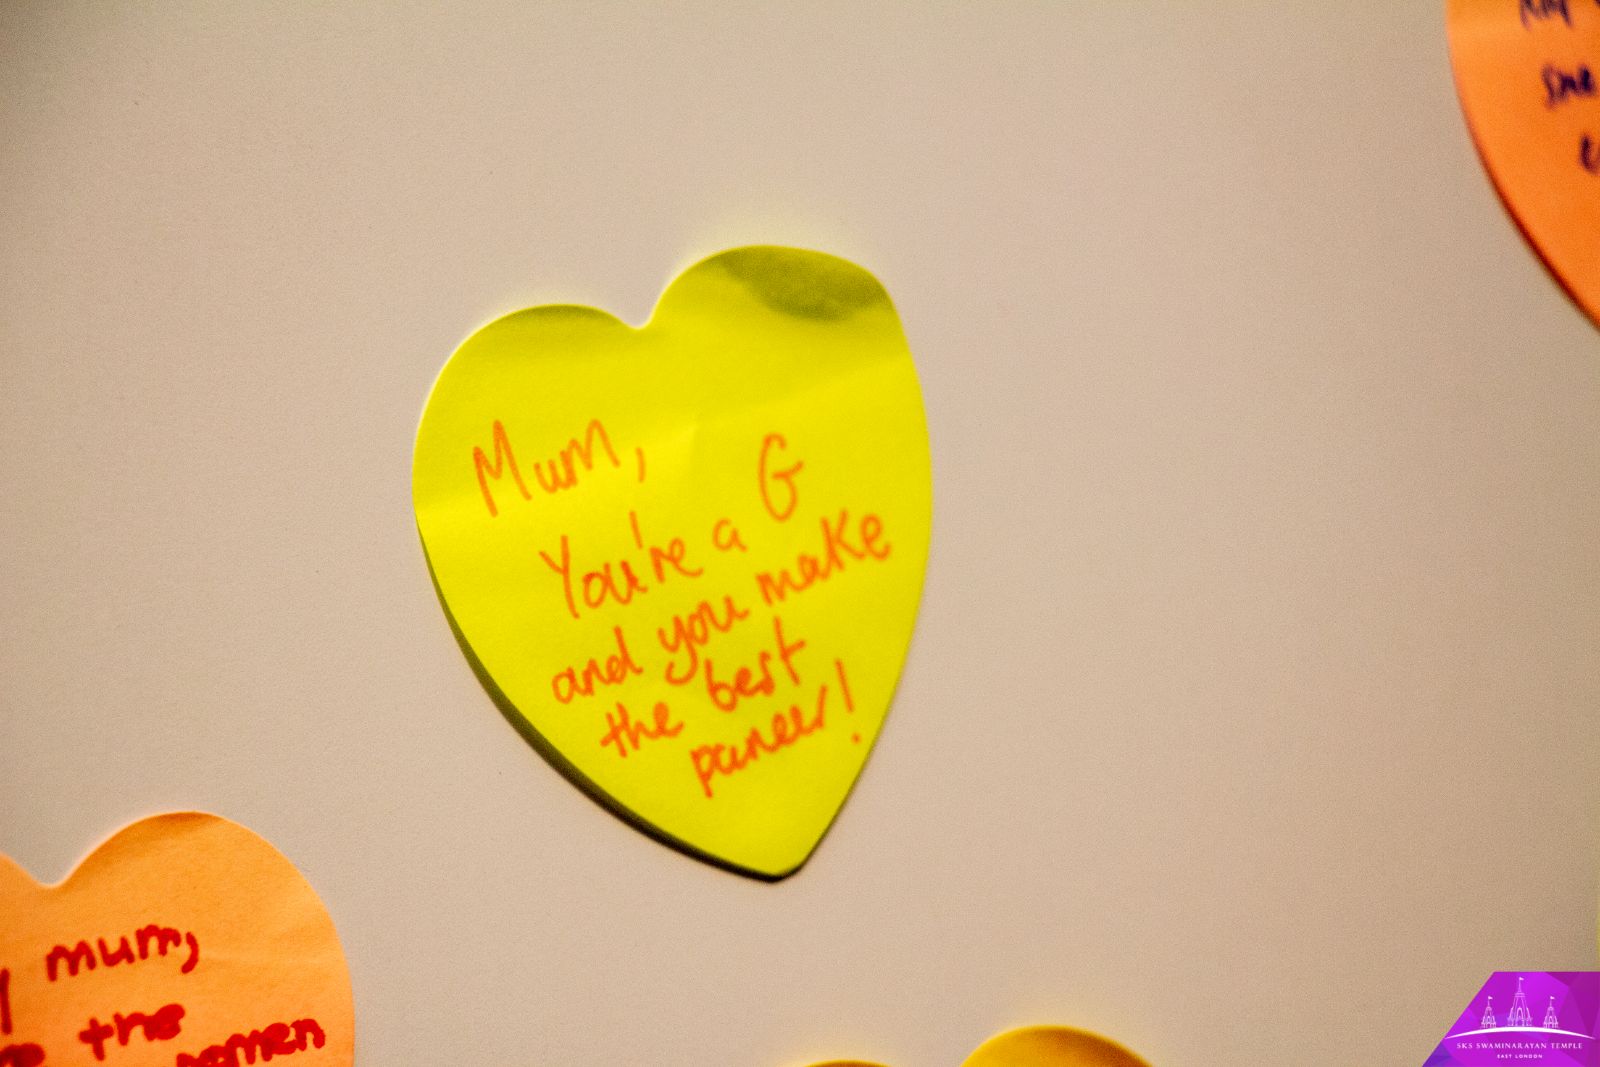 Mum,
You're a G
and you make
the best
paneer!
mum,
the
women
SKS SWAMINARAYAN TEMPLE
EAST LONDON